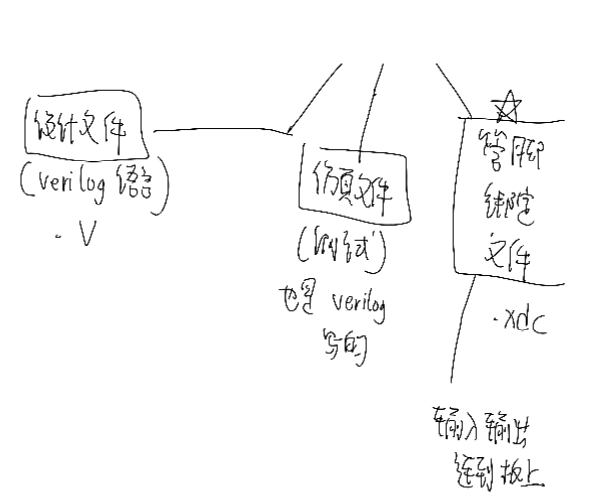 设计文件
(verilog 语言)
.V
仿真文件
(测试)
也是 verilog
写的
管脚
绑定
文件
.xdc
输入输出
连到板上